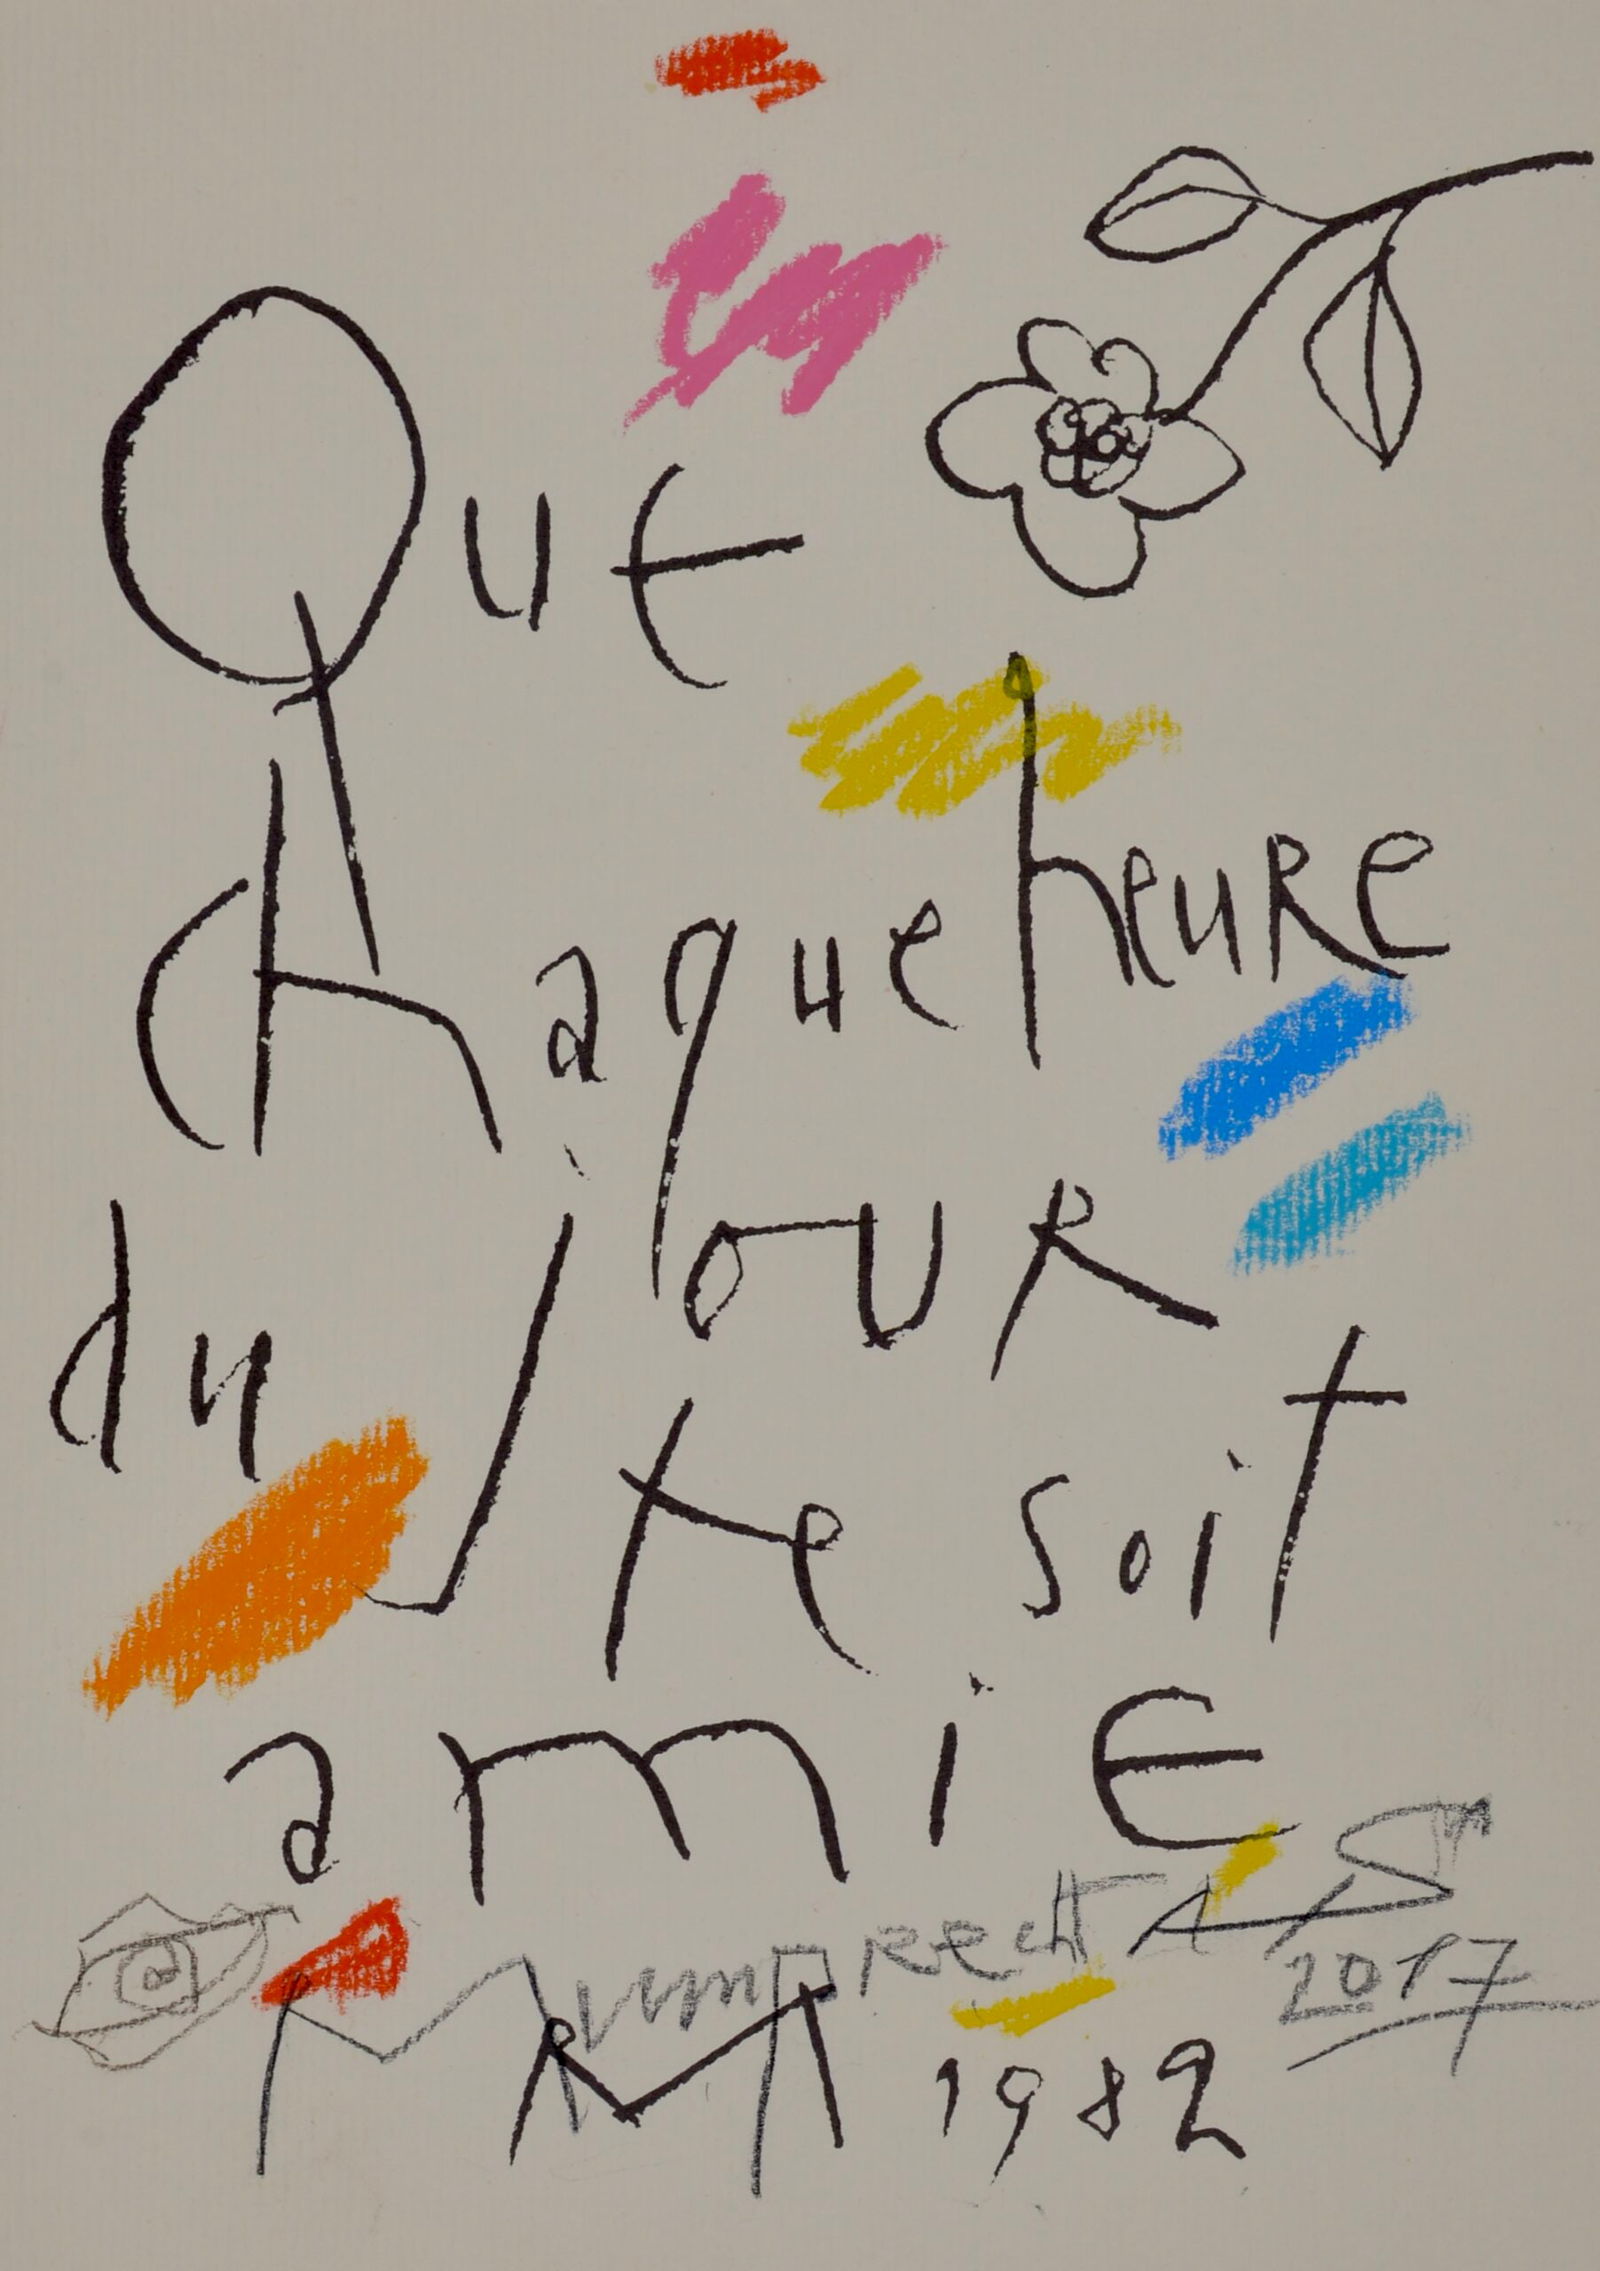 Que
chaque heure
du jour
te soit
amie
RM 1982
2017